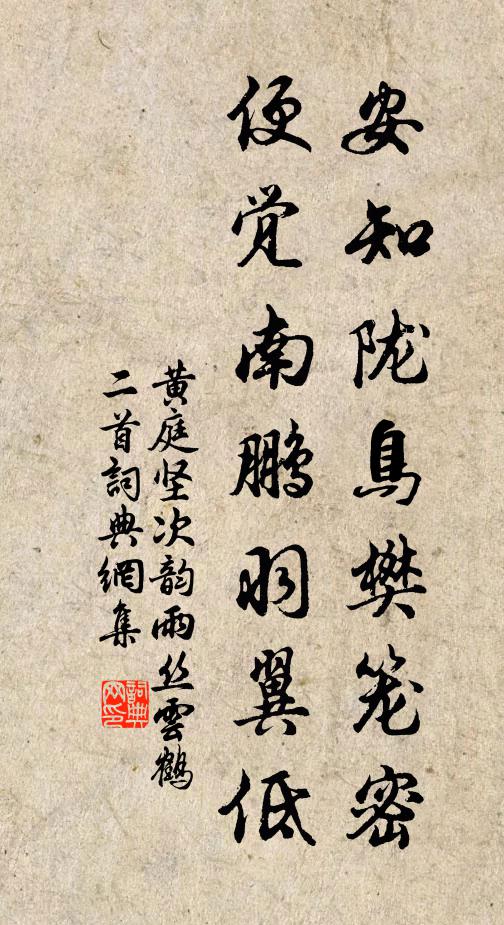 安知陇鸟樊笼密
便觉南鹏羽翼低
黄庭坚次韵雨丝雲鶴
二首詞典網集
詞典网印